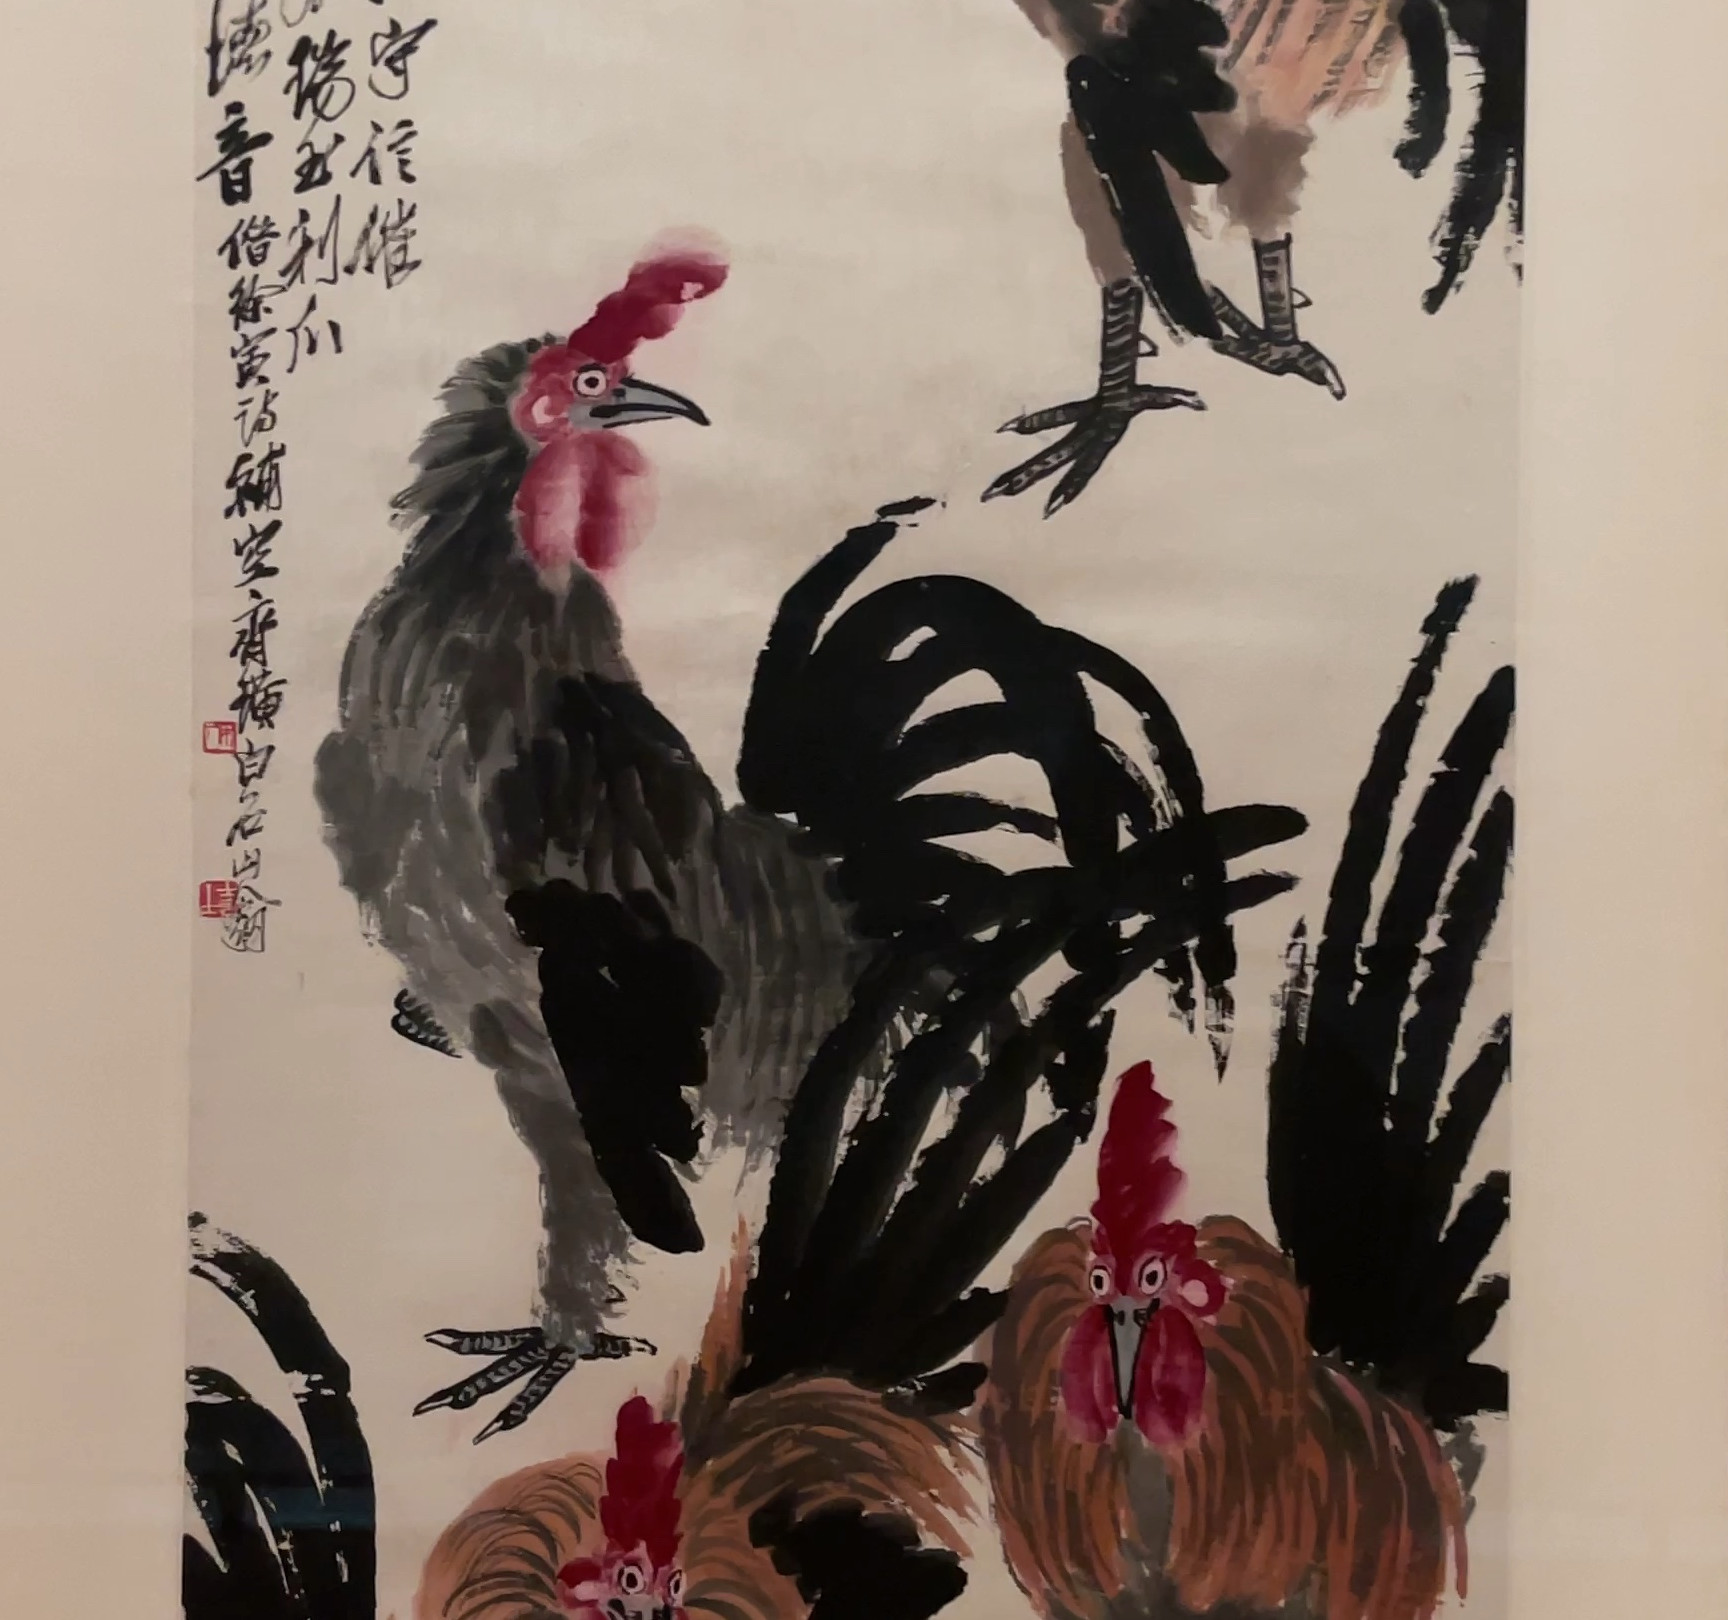 守信催
瑞玉利爪
德音借徐寅詩補空齊璜白石山翁